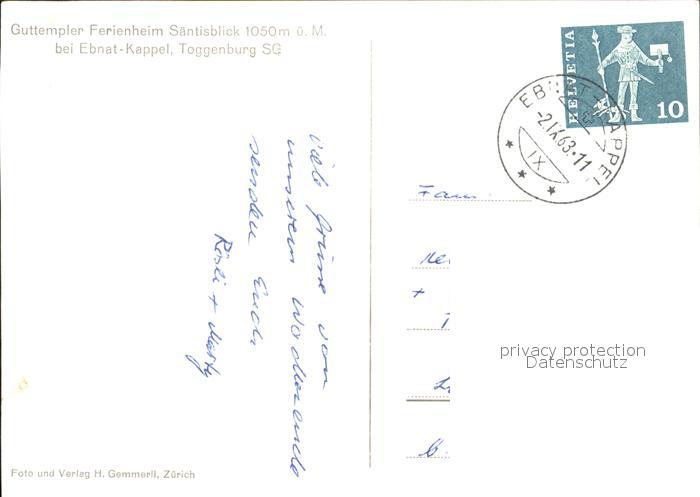 Guttempler Ferienheim Säntisblick 1050 m ü. M.
bei Ebnat-Kappel, Toggenburg SG
HELVETIA
10
EBNAT-KAPPEL
-2.IX.63-11
IX
viele Grüsse von
unserem Wochenende
senden Euch
Rösli +
Fam.
+
privacy protection
Datenschutz
Foto und Verlag H. Gemmerli, Zürich